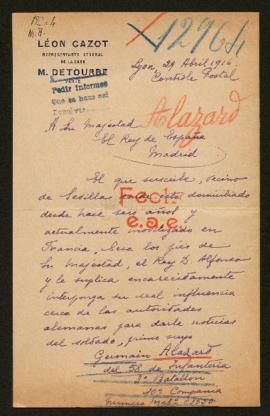 12964
LÉON CAZOT
REPRESENTANTE GENERAL
DE LA CASA
M. DETOURBE
Pedir informes
que se haga así
Lyon 29 Abril 1916.
Contrôle Postal
Alazard
A Su Majestad
El Rey de España
Madrid
El que suscribe, vecino
de Sevilla, donde está domiciliado
desde hace seis años y
actualmente movilizado en
Francia, besa los pies de
Su Majestad, el Rey D. Alfonso
y le suplica encarecidamente
interponga su real influencia
cerca de las autoridades
alemanas para darle noticias
del soldado, primo suyo
Germain Alazard
del 58 de Infantería
3º Batallón
10ª Compañía
Número Mat.le
Fech.
e.a.e.